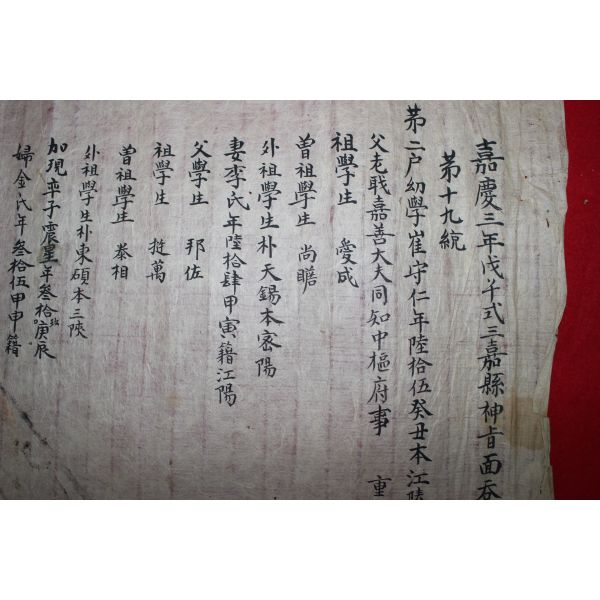 嘉慶三年戊午式三嘉縣神旨面吞
第十九統
第二戶幼學崔守仁年陸拾伍癸丑本江陵
父老職嘉善大夫同知中樞府事 重
祖學生 愛成
曾祖學生 尚瞻
外祖學生朴天錫本密陽
妻李氏年陸拾肆甲寅籍江陽
父學生 邦佐
祖學生 挺萬
曾祖學生 泰相
外祖學生朴東碩本三陟
加現奕子震星年叁拾玖庚辰
婦金氏年叁拾伍甲申籍